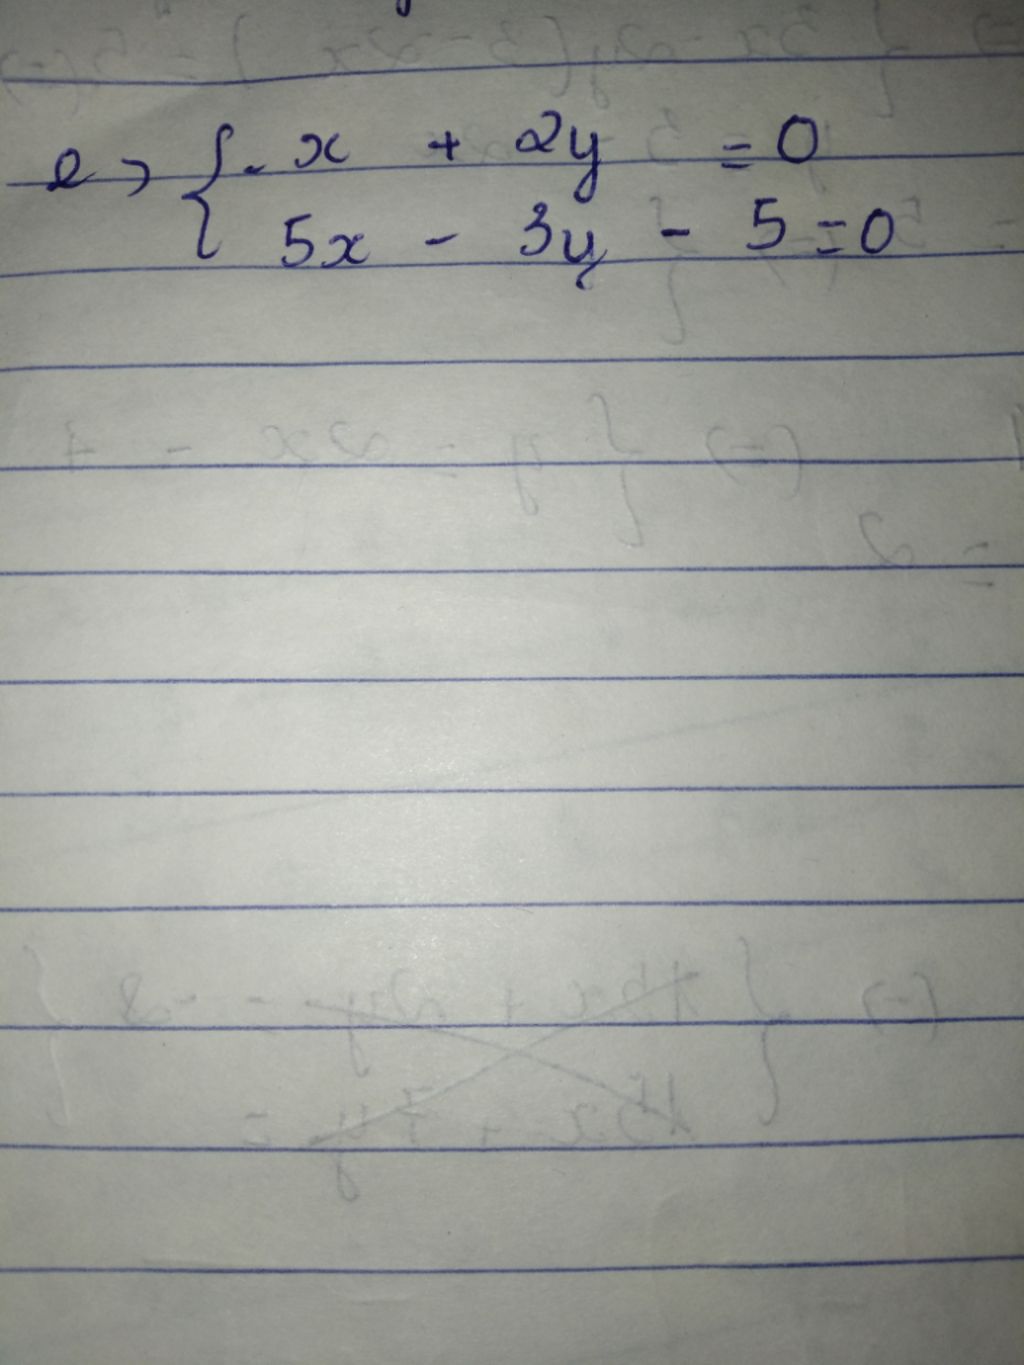 e) { - x + 2y = 0
5x - 3y - 5 = 0